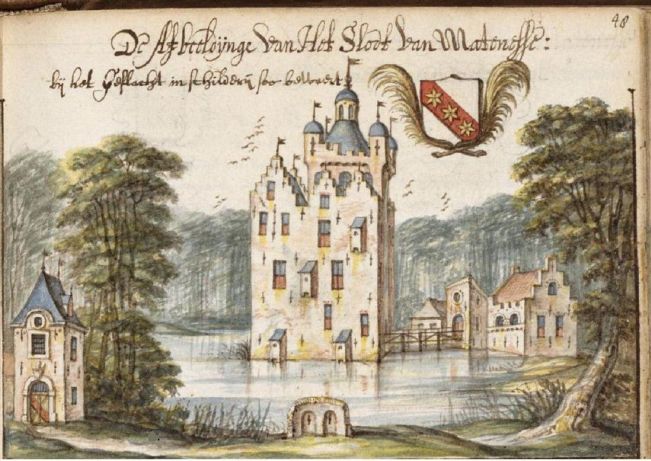 48
De Afbeeldynge van Het Slodt van Matenesse:
bij het Geslacht in schilderij soo bewaert